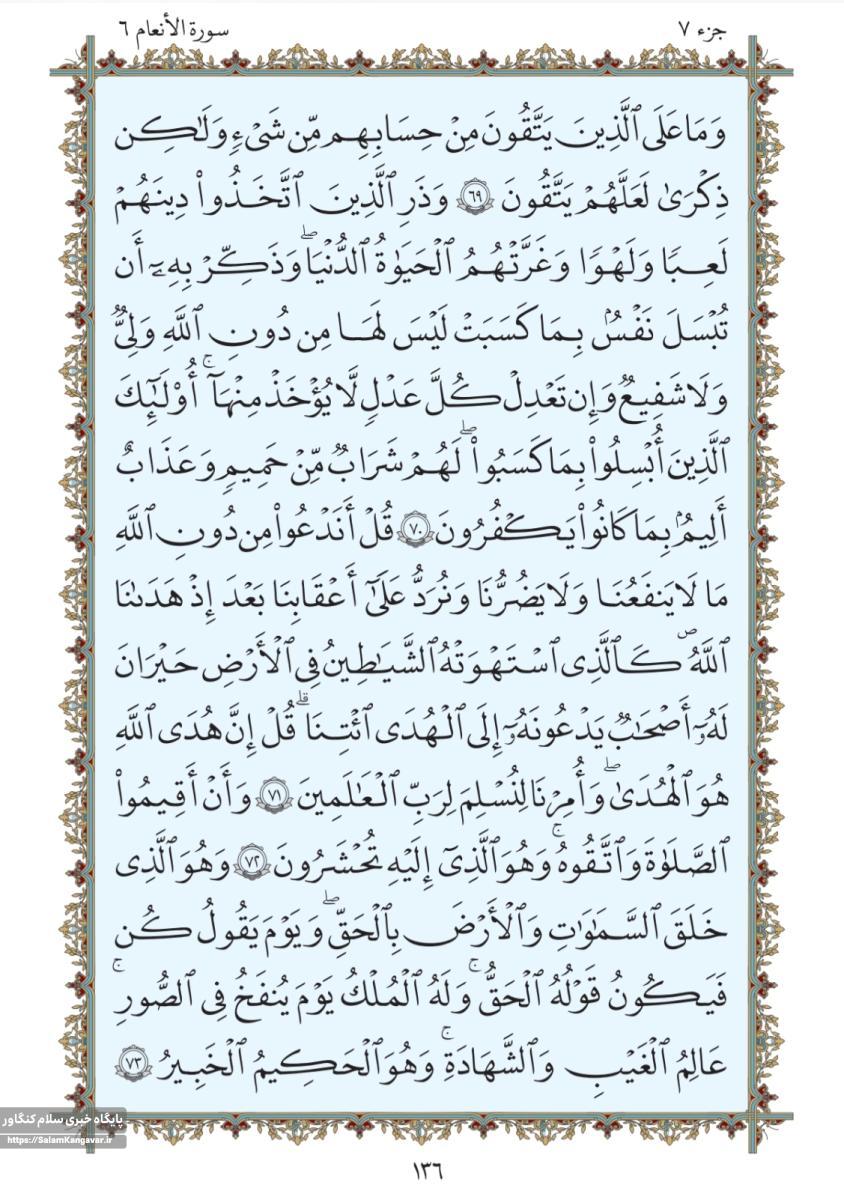 جزء ٧
سورة الأنعام ٦
وَمَا عَلَى ٱلَّذِينَ يَتَّقُونَ مِنْ حِسَابِهِم مِّن شَىْءٍ وَلَٰكِن
ذِكْرَىٰ لَعَلَّهُمْ يَتَّقُونَ ٦٩ وَذَرِ ٱلَّذِينَ ٱتَّخَذُوا۟ دِينَهُمْ
لَعِبًا وَلَهْوًا وَغَرَّتْهُمُ ٱلْحَيَوٰةُ ٱلدُّنْيَا ۖ وَذَكِّرْ بِهِۦٓ أَن
تُبْسَلَ نَفْسٌۢ بِمَا كَسَبَتْ لَيْسَ لَهَا مِن دُونِ ٱللَّهِ وَلِىٌّ
وَلَا شَفِيعٌ وَإِن تَعْدِلْ كُلَّ عَدْلٍ لَّا يُؤْخَذْ مِنْهَآ ۗ أُو۟لَٰٓئِكَ
ٱلَّذِينَ أُبْسِلُوا۟ بِمَا كَسَبُوا۟ ۖ لَهُمْ شَرَابٌ مِّنْ حَمِيمٍ وَعَذَابٌ
أَلِيمٌۢ بِمَا كَانُوا۟ يَكْفُرُونَ ٧٠ قُلْ أَنَدْعُوا۟ مِن دُونِ ٱللَّهِ
مَا لَا يَنفَعُنَا وَلَا يَضُرُّنَا وَنُرَدُّ عَلَىٰٓ أَعْقَابِنَا بَعْدَ إِذْ هَدَىٰنَا
ٱللَّهُ ۖ كَٱلَّذِى ٱسْتَهْوَتْهُ ٱلشَّيَٰطِينُ فِى ٱلْأَرْضِ حَيْرَانَ
لَهُۥٓ أَصْحَٰبٌ يَدْعُونَهُۥٓ إِلَى ٱلْهُدَى ٱئْتِنَا ۗ قُلْ إِنَّ هُدَى ٱللَّهِ
هُوَ ٱلْهُدَىٰ ۖ وَأُمِرْنَا لِنُسْلِمَ لِرَبِّ ٱلْعَٰلَمِينَ ٧١ وَأَنْ أَقِيمُوا۟
ٱلصَّلَوٰةَ وَٱتَّقُوهُ ۚ وَهُوَ ٱلَّذِىٓ إِلَيْهِ تُحْشَرُونَ ٧٢ وَهُوَ ٱلَّذِى
خَلَقَ ٱلسَّمَٰوَٰتِ وَٱلْأَرْضَ بِٱلْحَقِّ ۖ وَيَوْمَ يَقُولُ كُن
فَيَكُونُ قَوْلُهُ ٱلْحَقُّ ۚ وَلَهُ ٱلْمُلْكُ يَوْمَ يُنفَخُ فِى ٱلصُّورِ ۚ
عَٰلِمُ ٱلْغَيْبِ وَٱلشَّهَٰدَةِ ۚ وَهُوَ ٱلْحَكِيمُ ٱلْخَبِيرُ ٧٣
پایگاه خبری سلام کنگاور
https://SalamKangavar.ir
١٣٦